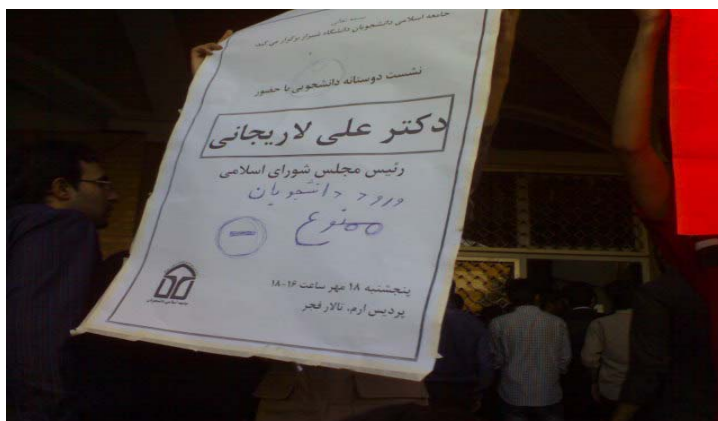 بسمه تعالی
جامعه اسلامی دانشجویان دانشگاه شیراز برگزار می کند:
نشست دوستانه دانشجویی با حضور
دکتر علی لاریجانی
رئیس مجلس شورای اسلامی
ورود دانشجویان
ممنوع
پنجشنبه ۱۸ مهر ساعت ۱۶-۱۸
پردیس ارم، تالار فجر
جامعه اسلامی دانشجویان